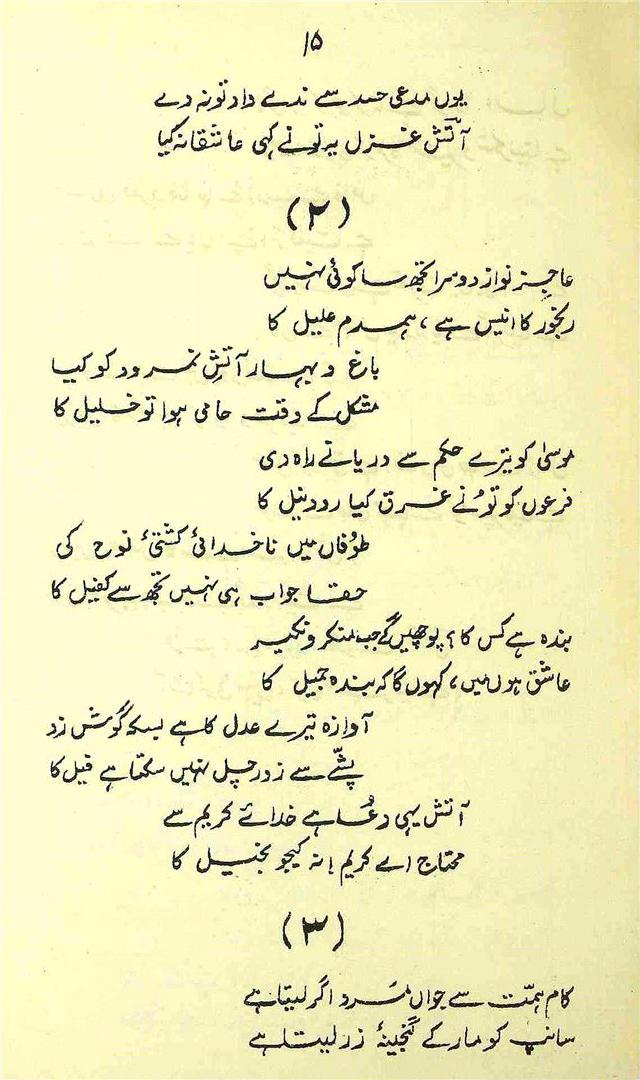 ۱۵
یوں مدعی حسد سے نہ دے داد تو نہ دے
آتشؔ غزل یہ تونے کہی عاشقانہ کیا
(۲)
عاجز نواز دوسرا تجھ سا کوئی نہیں
رنجور کا انیس ہے، ہمدم علیل کا
باغ و بہار آتشِ نمرود کو کیا
مشکل کے وقت حامی ہوا تو خلیل کا
موسیٰ کو تیرے حکم سے دریا نے راہ دی
فرعوں کو تُو نے غرق کیا رودِ نیل کا
طوُفاں میں ناخدائیٔ کشتیٔ نوح کی
حقا جواب ہی نہیں تجھ سے کفیل کا
بندہ ہے کس کا؟ پوچھیں گے جب منکر و نکیر
عاشق ہوں میں، کہوں گا کہ بندہ جمیل کا
آوازہ تیرے عدل کا ہے بسکہ گوش زد
پشّے سے زور چل نہیں سکتا ہے فیل کا
آتش یہی دعُا ہے خدائے کریم سے
محتاج اے کریم! نہ کیجو بخیل کا
(۳)
کام ہمّت سے جواں مَرد اگر لیتا ہے
سانپ کو مار کے گنجینۂ زر لیتا ہے